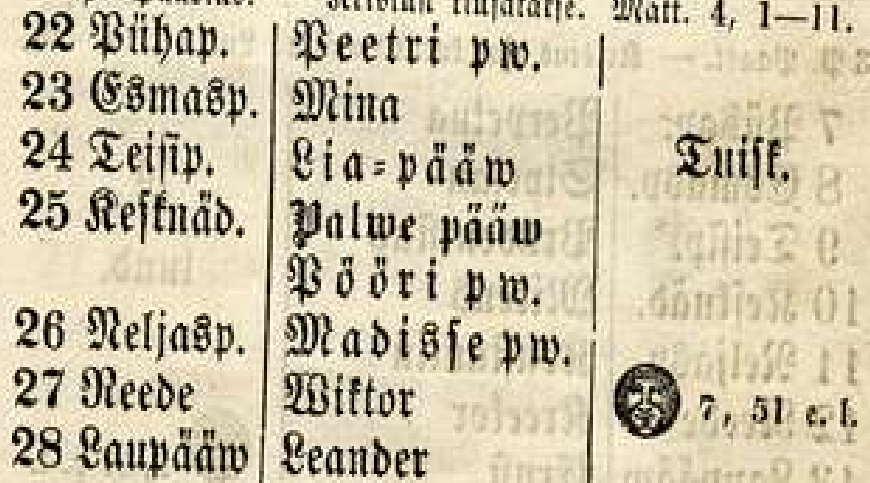 Matt. 4, 1—11.
22 Pühap. Peetri pw.
23 Esmasp. Mina
24 Teisip. Lia-pääw Tuisk.
25 Kesknäd. Palwe pääw
Pööri pw.
26 Neljasp. Madisse pw.
27 Reede Wiktor 7, 51 e. l.
28 Laupääw Leander